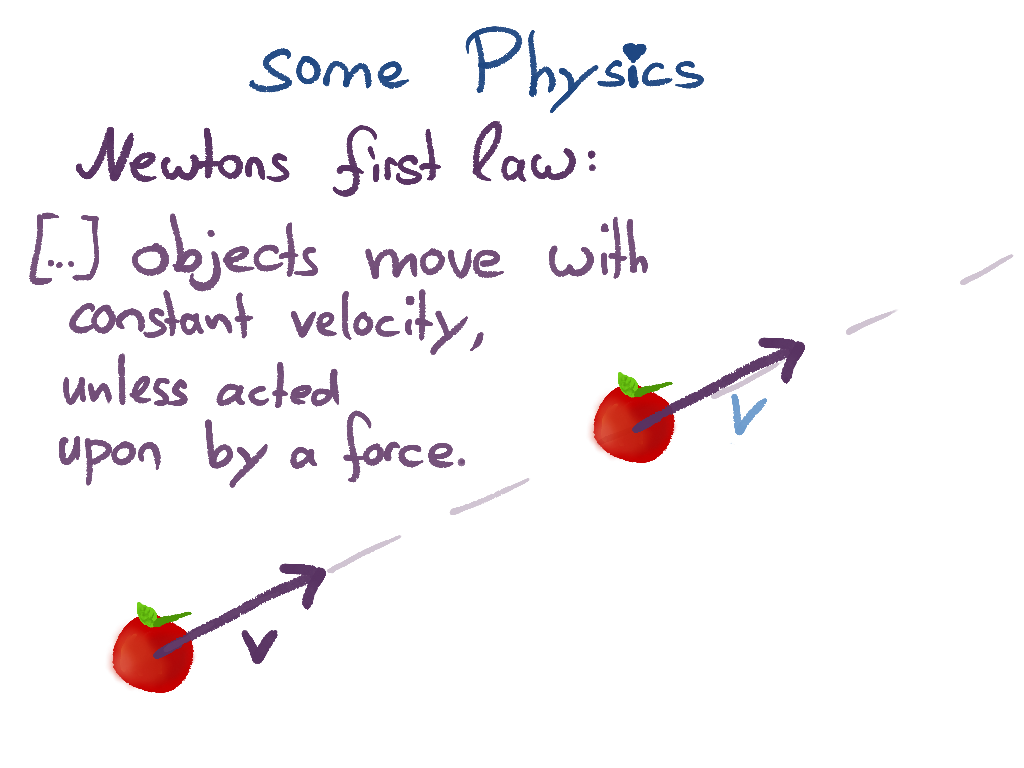 some Physics
Newtons first law:
[...] objects move with
constant velocity,
unless acted
upon by a force.
v
v